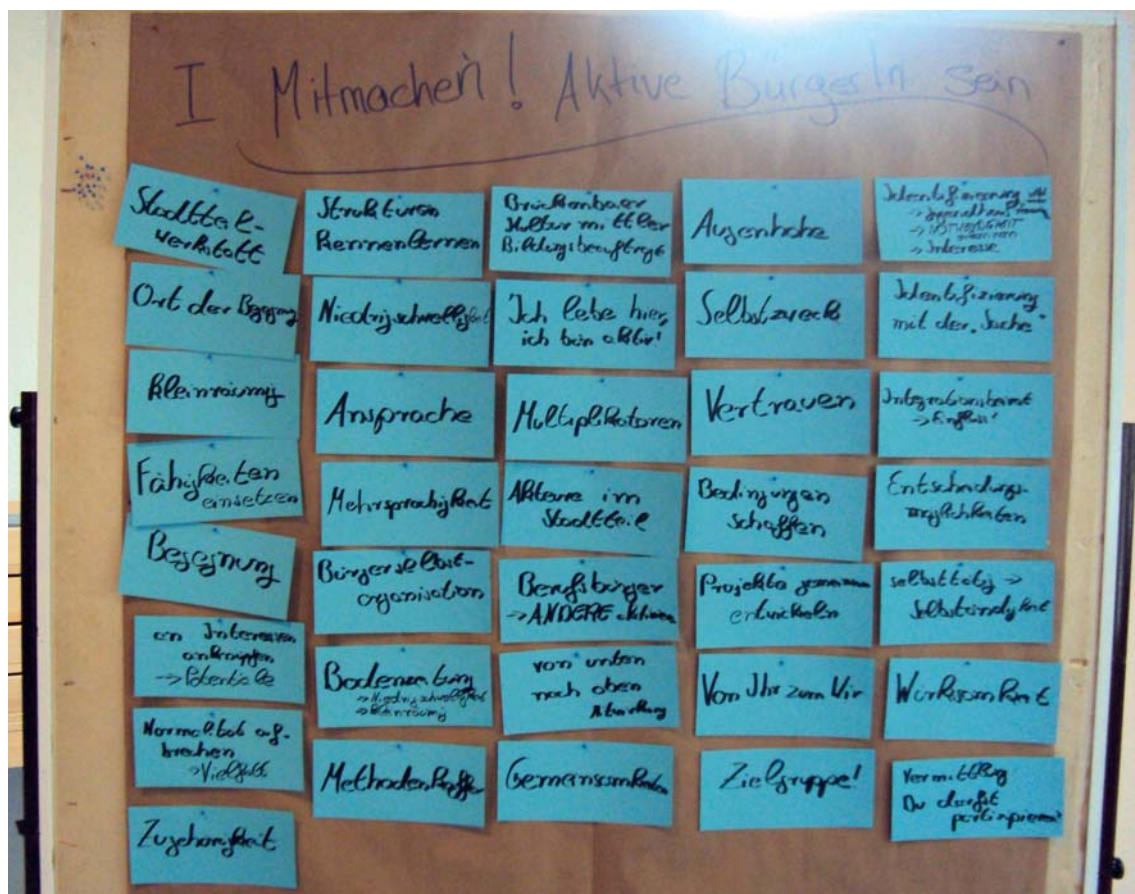 I Mitmachen! Aktive BürgerIn sein
Stadtteil-
werkstatt
Ort der Begegnung
kleinräumig
Fähigkeiten
einsetzen
Begegnung
an Interessen
anknüpfen
→ Potentiale
Normalität auf-
brechen
→ Vielfalt
Zugehörigkeit
Strukturen
kennenlernen
Niedrigschwelligkeit
Ansprache
Mehrsprachigkeit
Bürgerselbst-
organisation
Bodenhaftung
→ Niedrigschwelligkeit
→ kleinräumig
Methodenkoffer
Brückenbauer
Kulturmittler
Bildungsbeauftragte
Ich lebe hier,
ich bin aktiv!
Multiplikatoren
Akteure im
Stadtteil
Berufsbürger
→ ANDERE aktivieren
von unten
nach oben
Gemeinsamkeiten
Augenhöhe
Selbstzweck
Vertrauen
Bedingungen
schaffen
Projekte gemeinsam
entwickeln
Von Ihr zum Wir
Zielgruppe!
Identifizierung
→ Jugendhaus
→ NOTWENDIGKEIT
→ Interesse
Identifizierung
mit der "Sache"
Integrationsbeirat
→ Einfluss!
Entscheidungs-
möglichkeiten
selbsttätig →
Selbständigkeit
Wirksamkeit
Vermittlung
Du darfst
partizipieren!